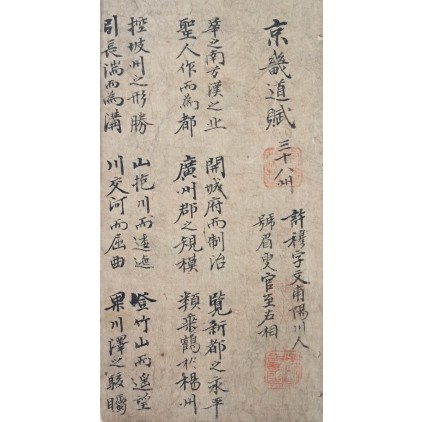 京畿道賦 三十八州
許穆字文甫陽川人
號眉叟官至右相
華之南方漢之止 開城府而制治 覽新都之永平
聖人作而為都 廣州郡之規模 類乘鶴於楊州
控坡州之形勝 山抱川而逶迤 登竹山而遙望
引長湍而為溝 川交河而屈曲 果川澤之駿